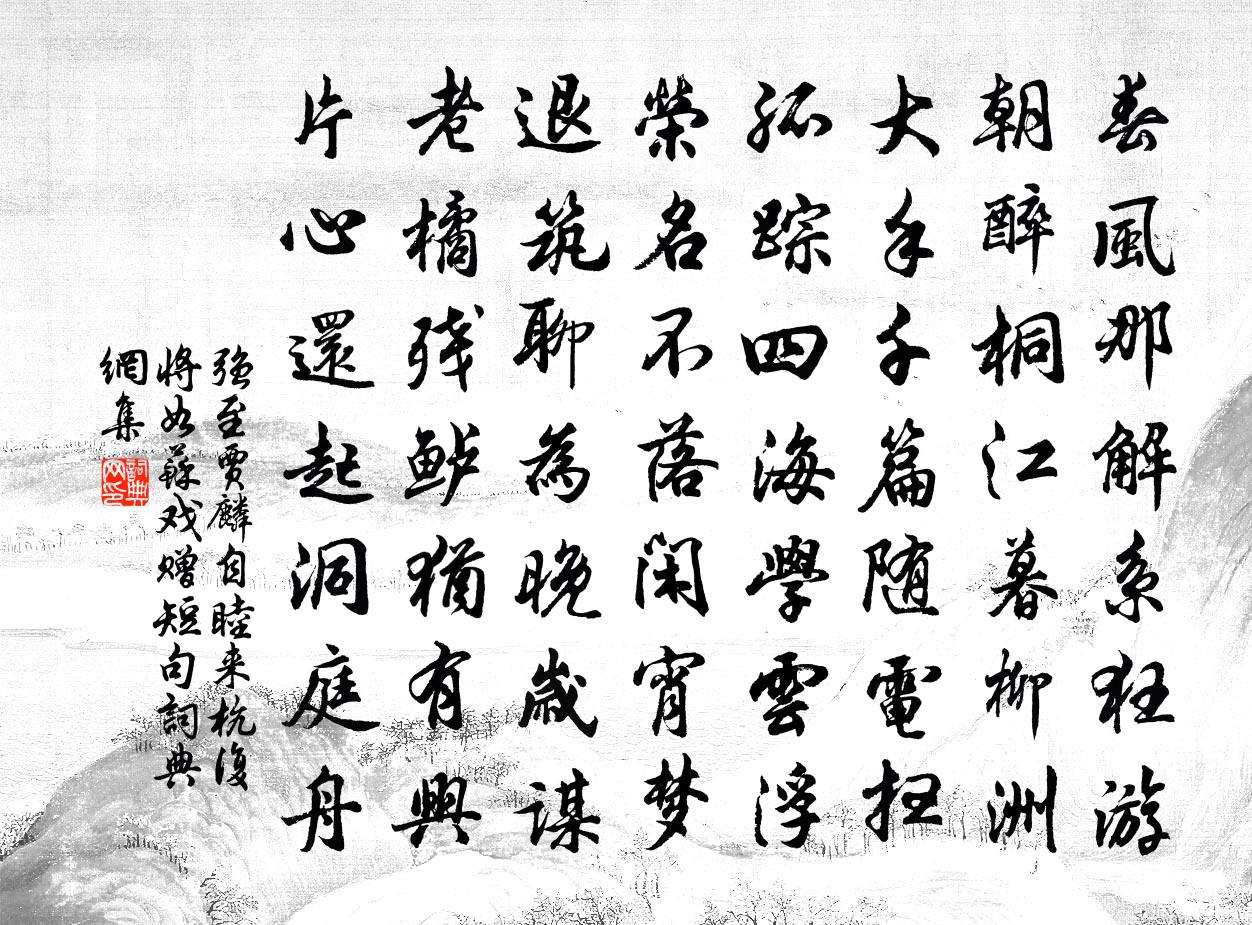 春風那解系狂游
朝醉桐江暮柳洲
大手千篇随電扫
孤踪四海學雲浮
榮名不落闲宵梦
退筑聊為晚歲謀
老橘残鲈猶有興
片心還起洞庭舟
强至賈麟自睦来杭復
將如蘇戏贈短句詞典
網集
詞典网印